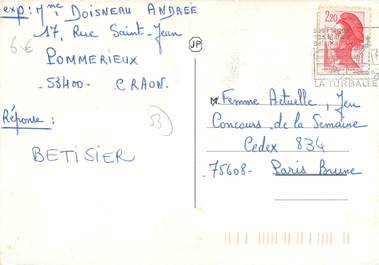 exp: Mme Doisneau Andrée
17, Rue Saint-Jean
Pommerieux
53400 - CRAON.
6€
Réponse :
BETISIER
53
JP
2,20
LA TURBALLE
Femme Actuelle, Jeu
Concours de la Semaine
Cedex 834
75608- Paris Brune